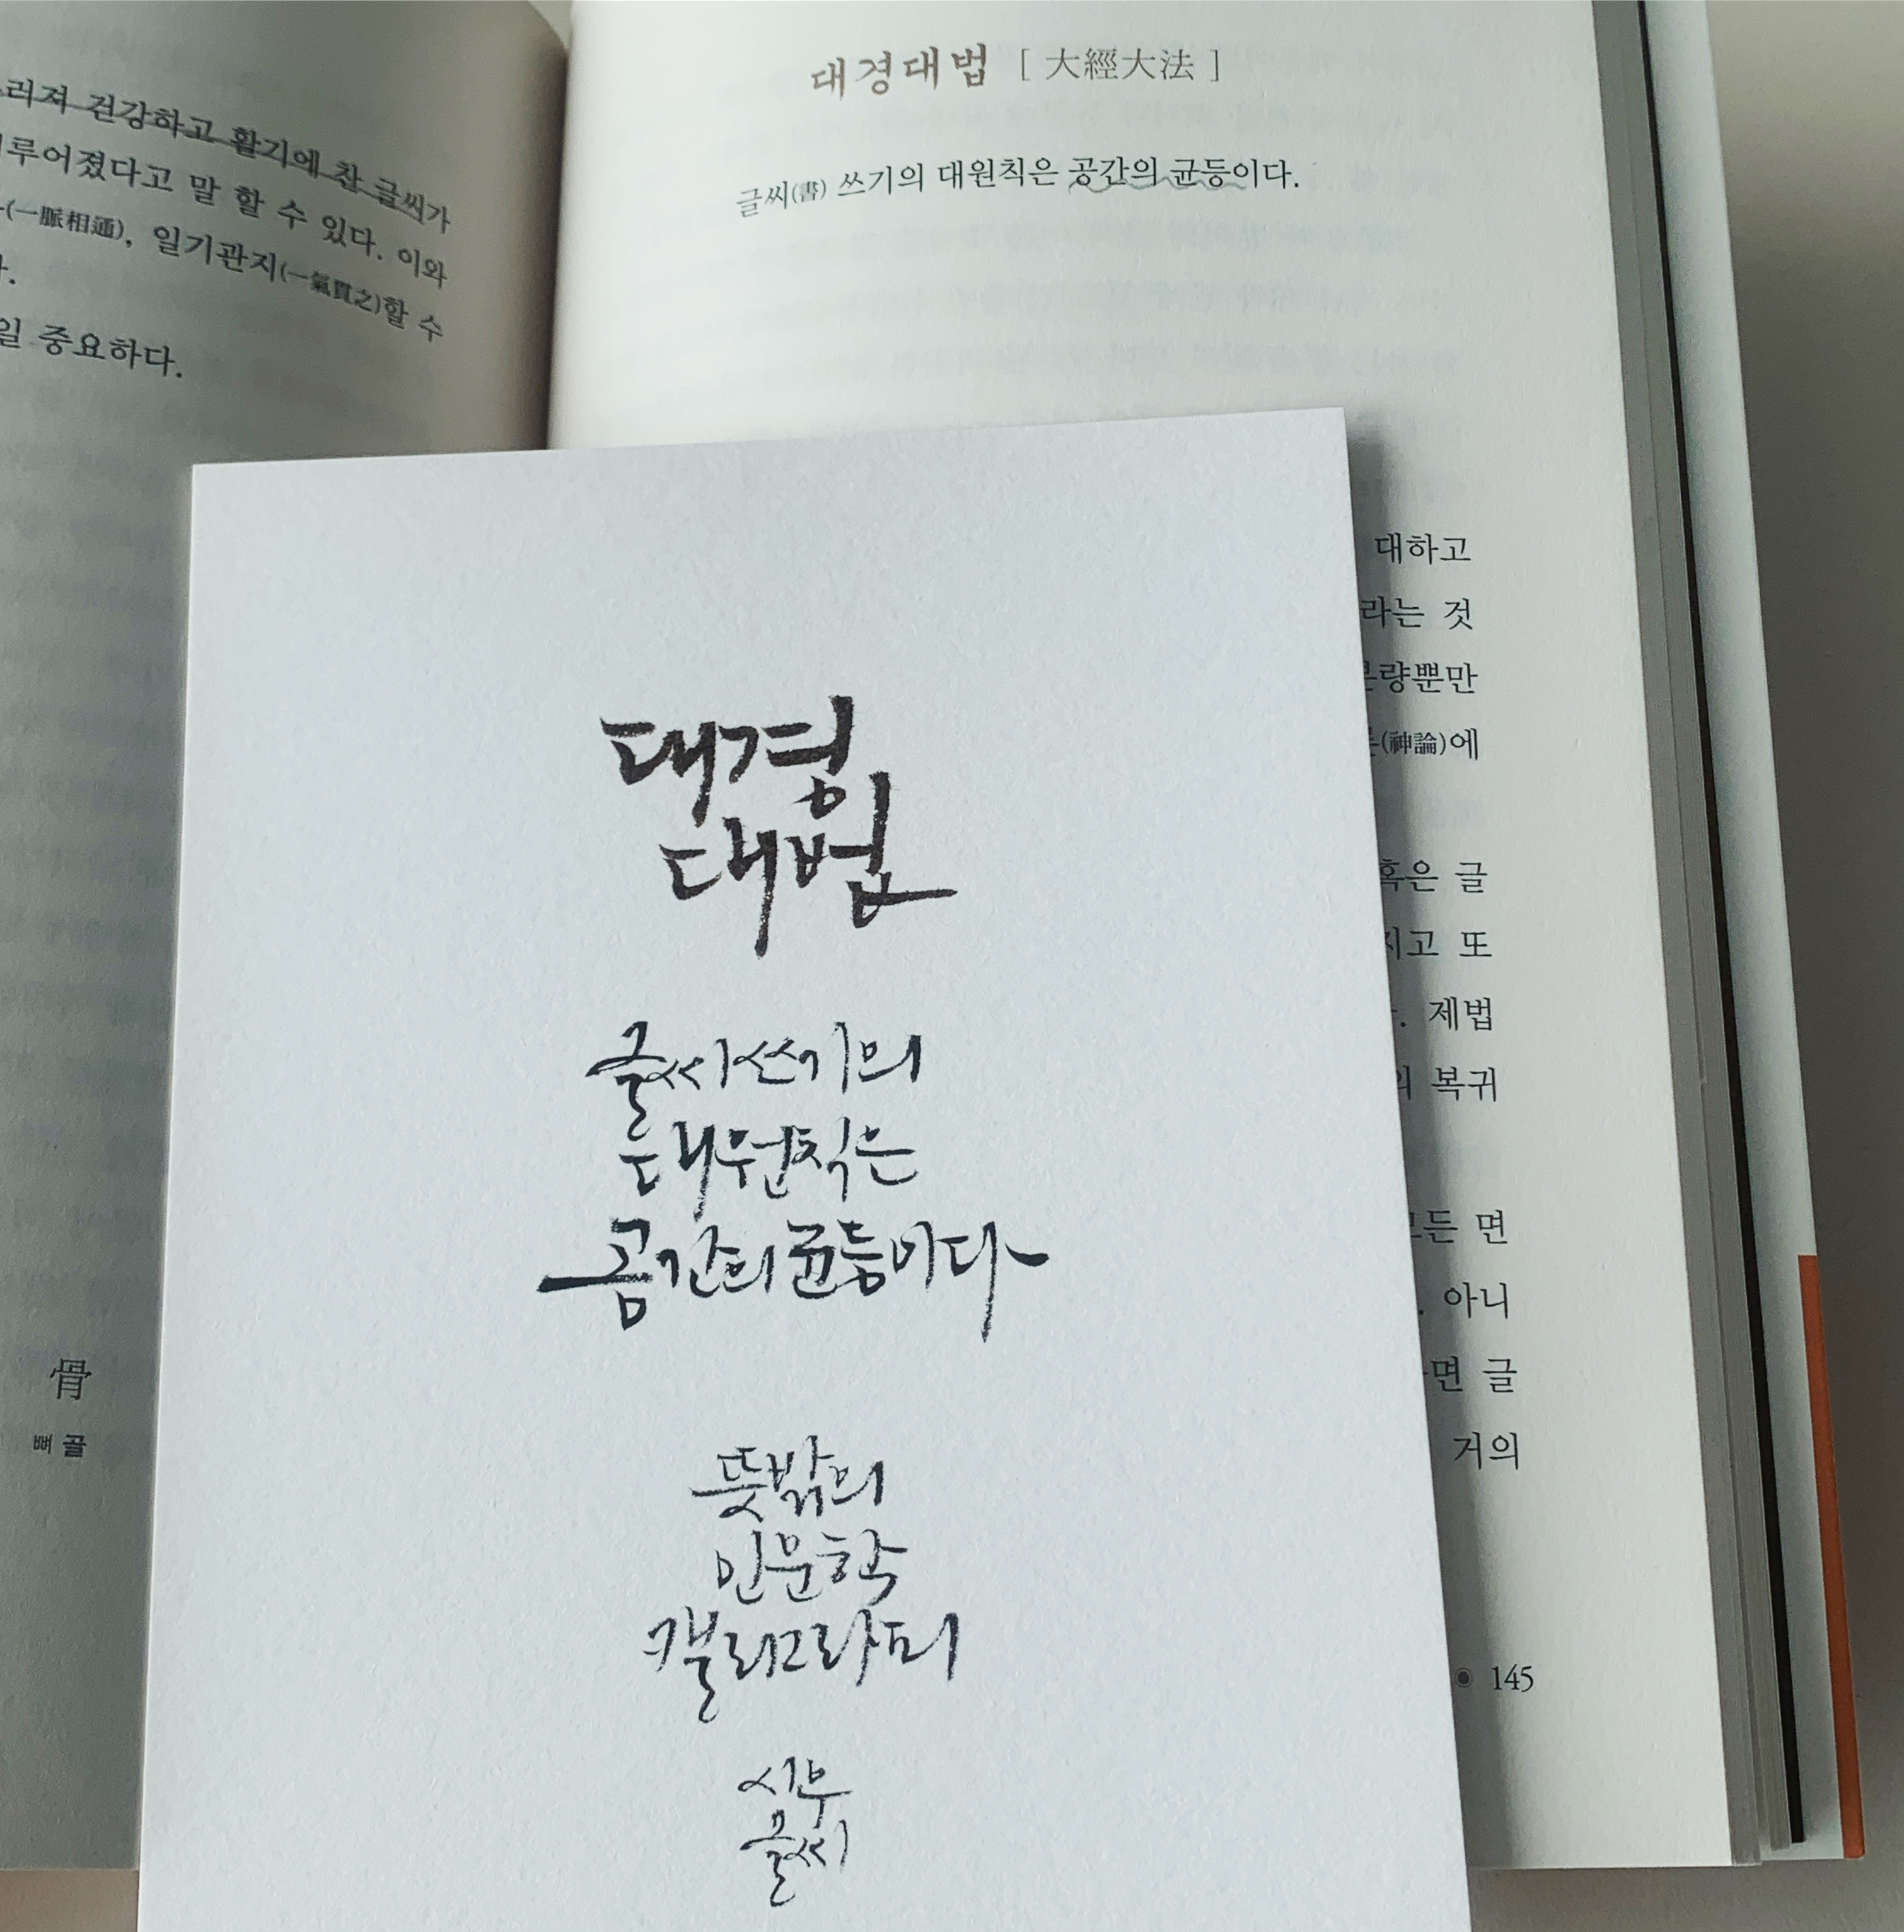 러져 건강하고 활기에 찬 글씨가
루어졌다고 말 할 수 있다. 이와
(一脈相通), 일기관지(一氣貫之)할 수
일 중요하다.
骨
뼈 골
대경대법 [ 大經大法 ]
글씨(書) 쓰기의 대원칙은 공간의 균등이다.
대하고
라는 것
량뿐만
(神論)에
혹은 글
지고 또
제법
의 복귀
모든 면
아니
면 글
거의
145
대경
대법
글씨쓰기의
대원칙은
공간의 균등이다
뜻밖의
인문학
캘리그라피
시부
글씨